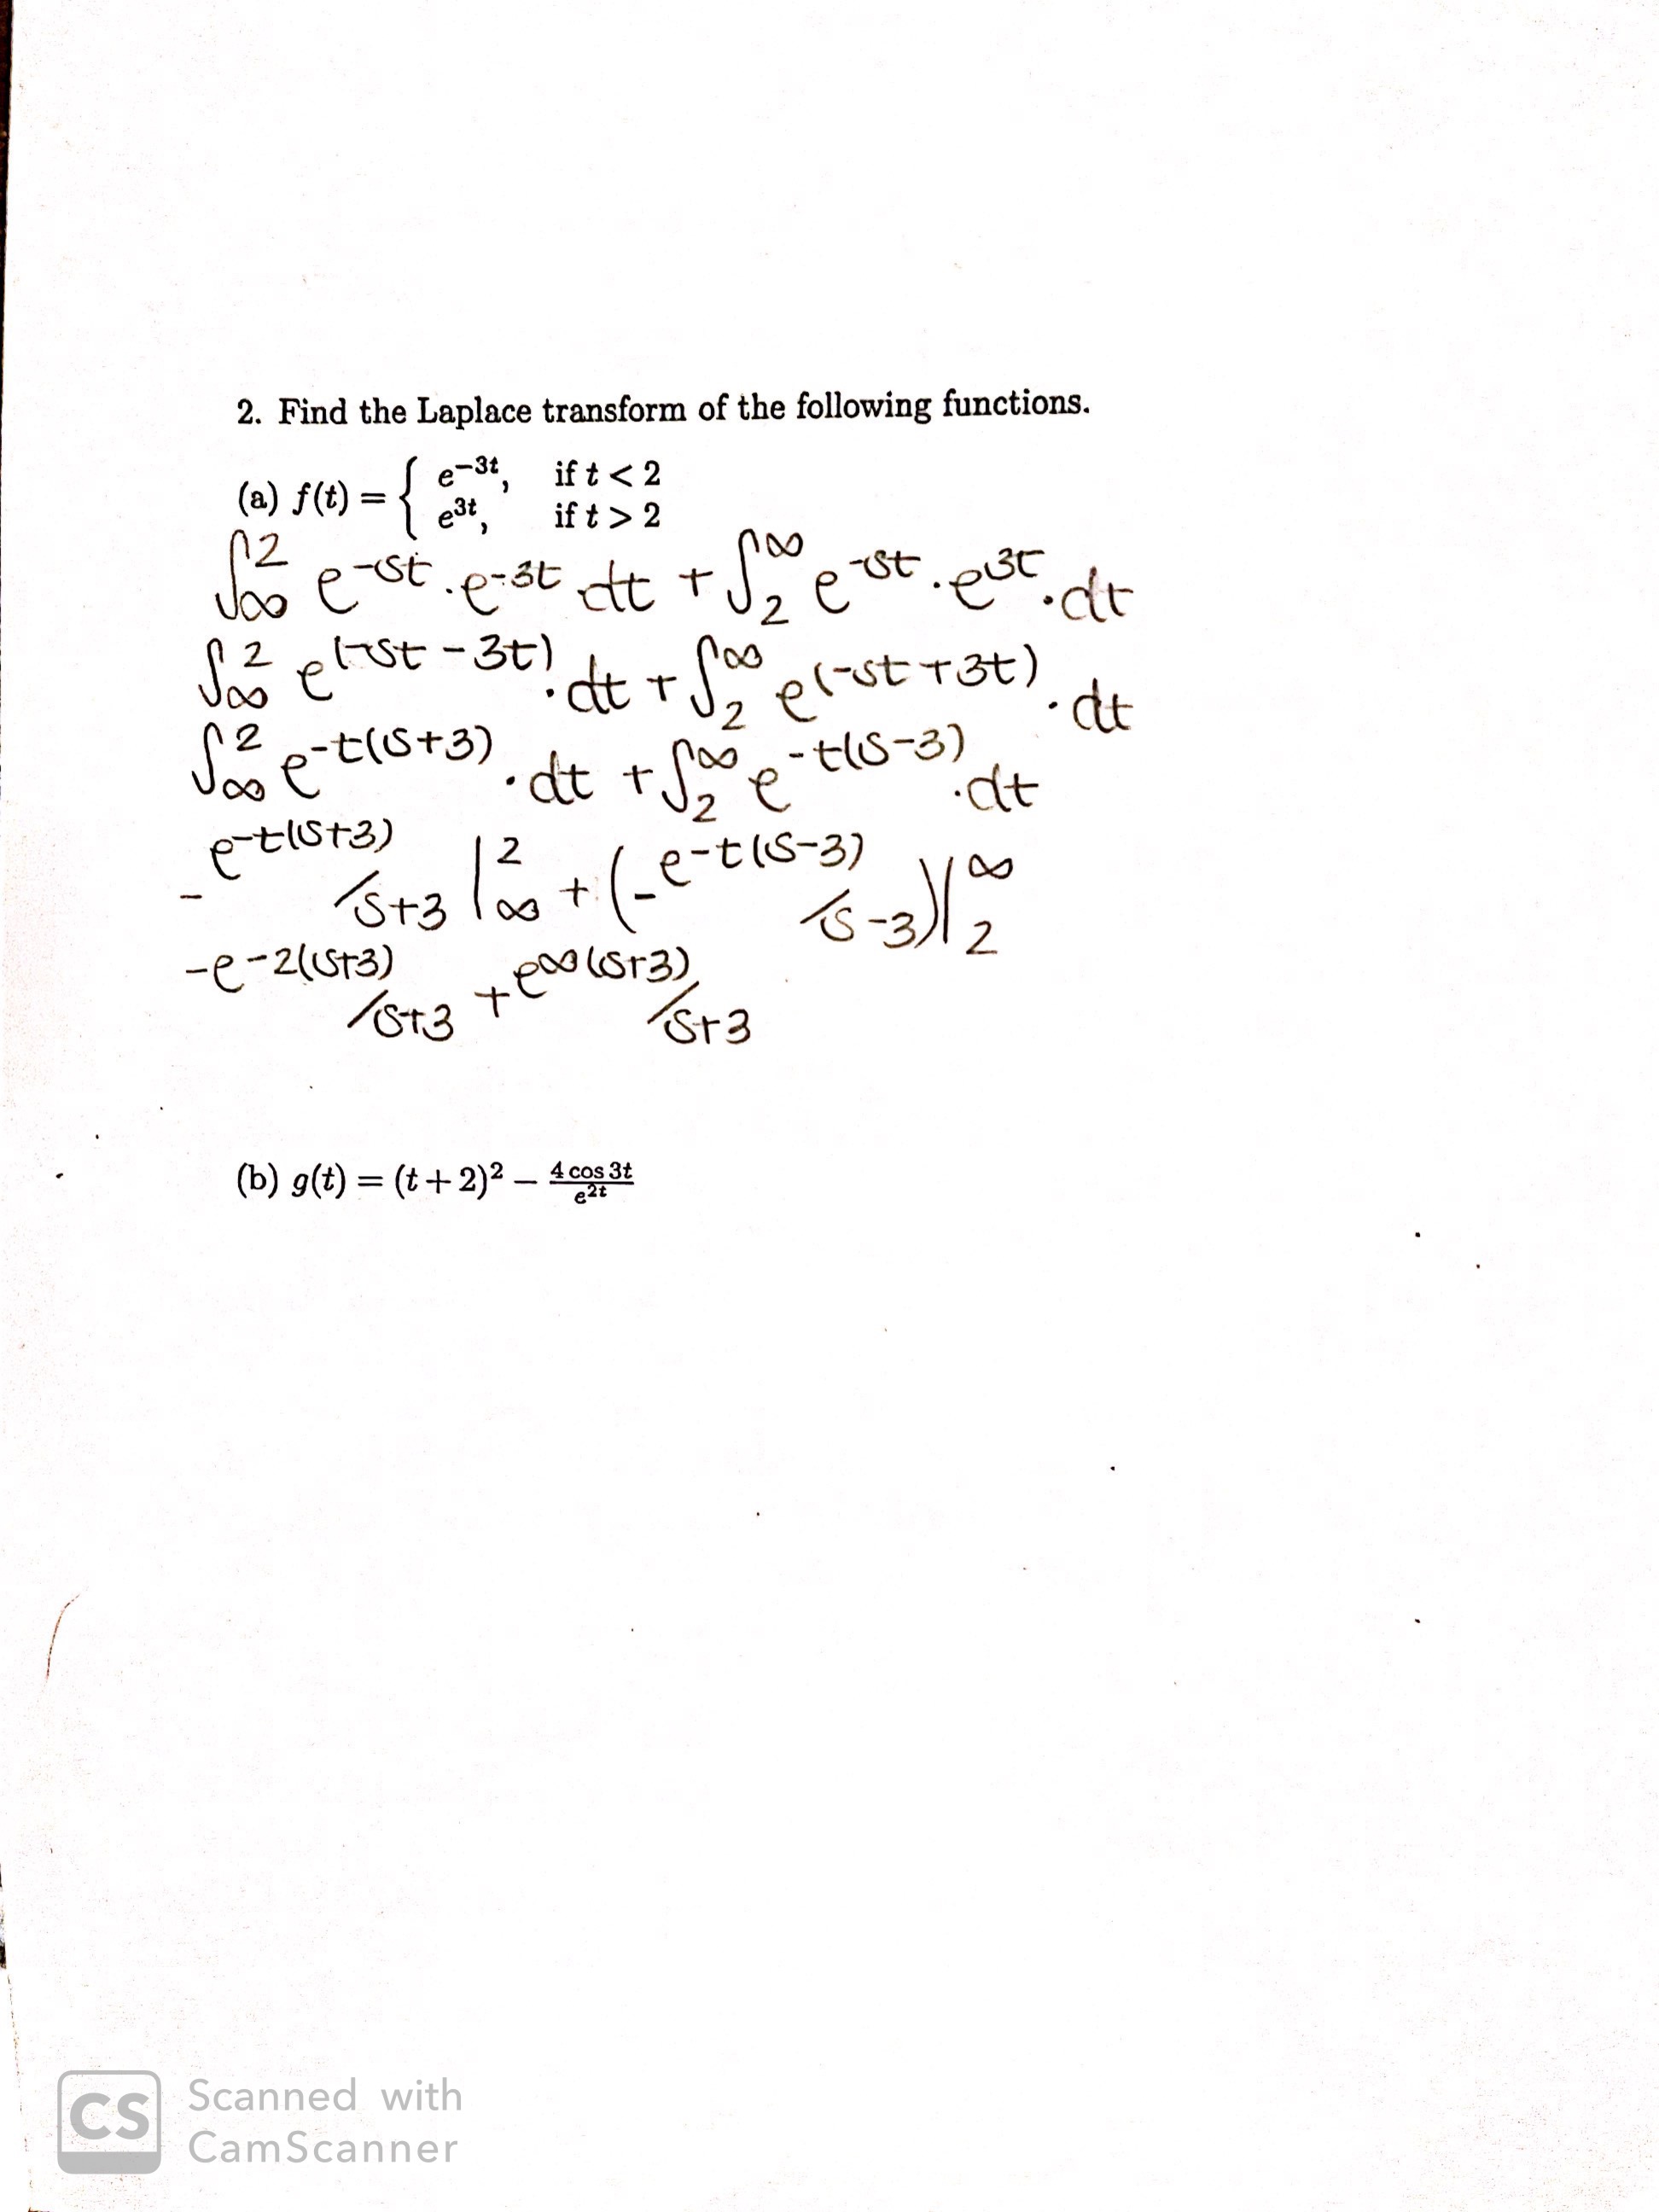 2. Find the Laplace transform of the following functions.
(a) f(t) = { e^{-3t}, if t < 2
e^{3t}, if t > 2
∫_∞^2 e^{-st} . e^{-3t} dt + ∫_2^∞ e^{-st} . e^{3t} . dt
∫_∞^2 e^{(-st-3t)} . dt + ∫_2^∞ e^{(-st+3t)} . dt
∫_∞^2 e^{-t(s+3)} . dt + ∫_2^∞ e^{-t(s-3)} . dt
- e^{-t(s+3)}/s+3 |_∞^2 + (- e^{-t(s-3)}/s-3)|_2^∞
-e^{-2(s+3)}/s+3 + e^{∞(s+3)}/s+3
(b) g(t) = (t + 2)² − \frac{4 cos 3t}{e^{2t}}
CS Scanned with
CamScanner